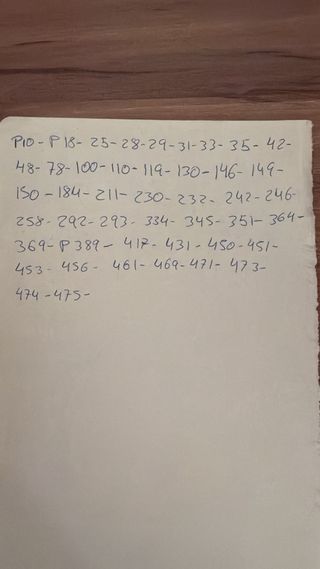 P10 - P 18 - 25 - 28 - 29 - 31 - 33 - 35 - 42 -
48 - 78 - 100 - 110 - 119 - 130 - 146 - 149 -
150 - 184 - 211 - 230 - 232 - 242 - 246 -
258 - 292 - 293 - 334 - 345 - 351 - 364 -
369 - P 389 - 417 - 431 - 450 - 451 -
453 - 456 - 461 - 469 - 471 - 473 -
474 - 475 -